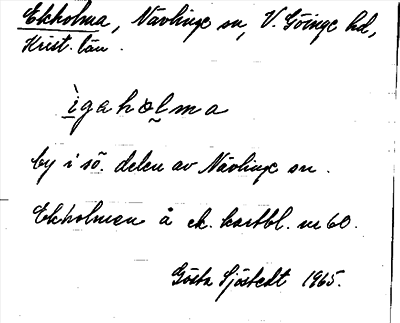 Ekholma, Nävlinge sn, V. Göinge hd,
Krist. län.
ìgahɷlma
by i sö. delen av Nävlinge sn.
Ekholmen å ek. kartbl. nr 60.
Gösta Sjöstedt 1965.